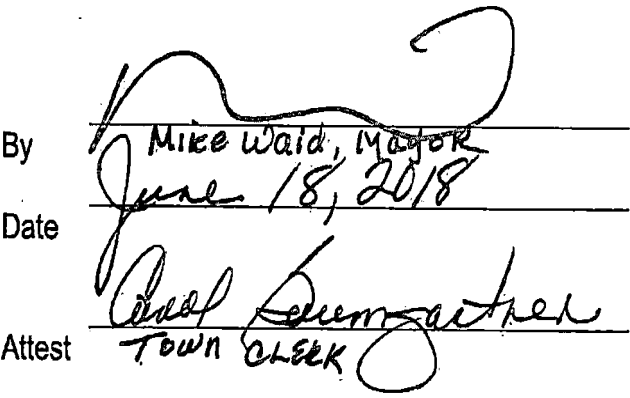 By
Mike Waid, Mayor
June 18, 2018
Date
Carol Baumgartner
Attest Town CLERK